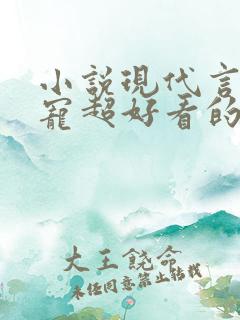 小说现代言
宠超好看的
大王饶命
未经同意禁止转载